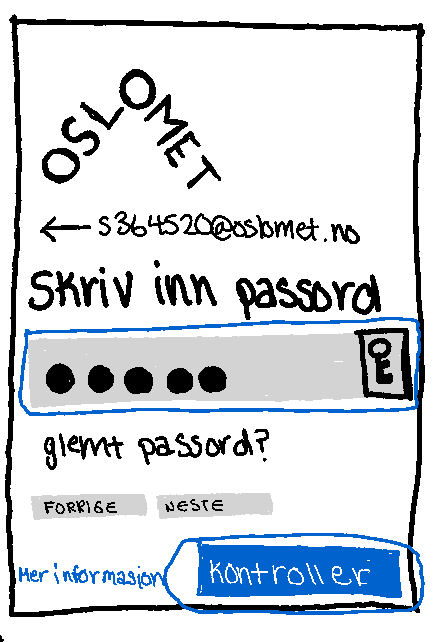 OSLOMET
← s364520@oslomet.no
Skriv inn passord
●●●●●
glemt passord?
FORRIGE NESTE
Mer informasjon Kontroller